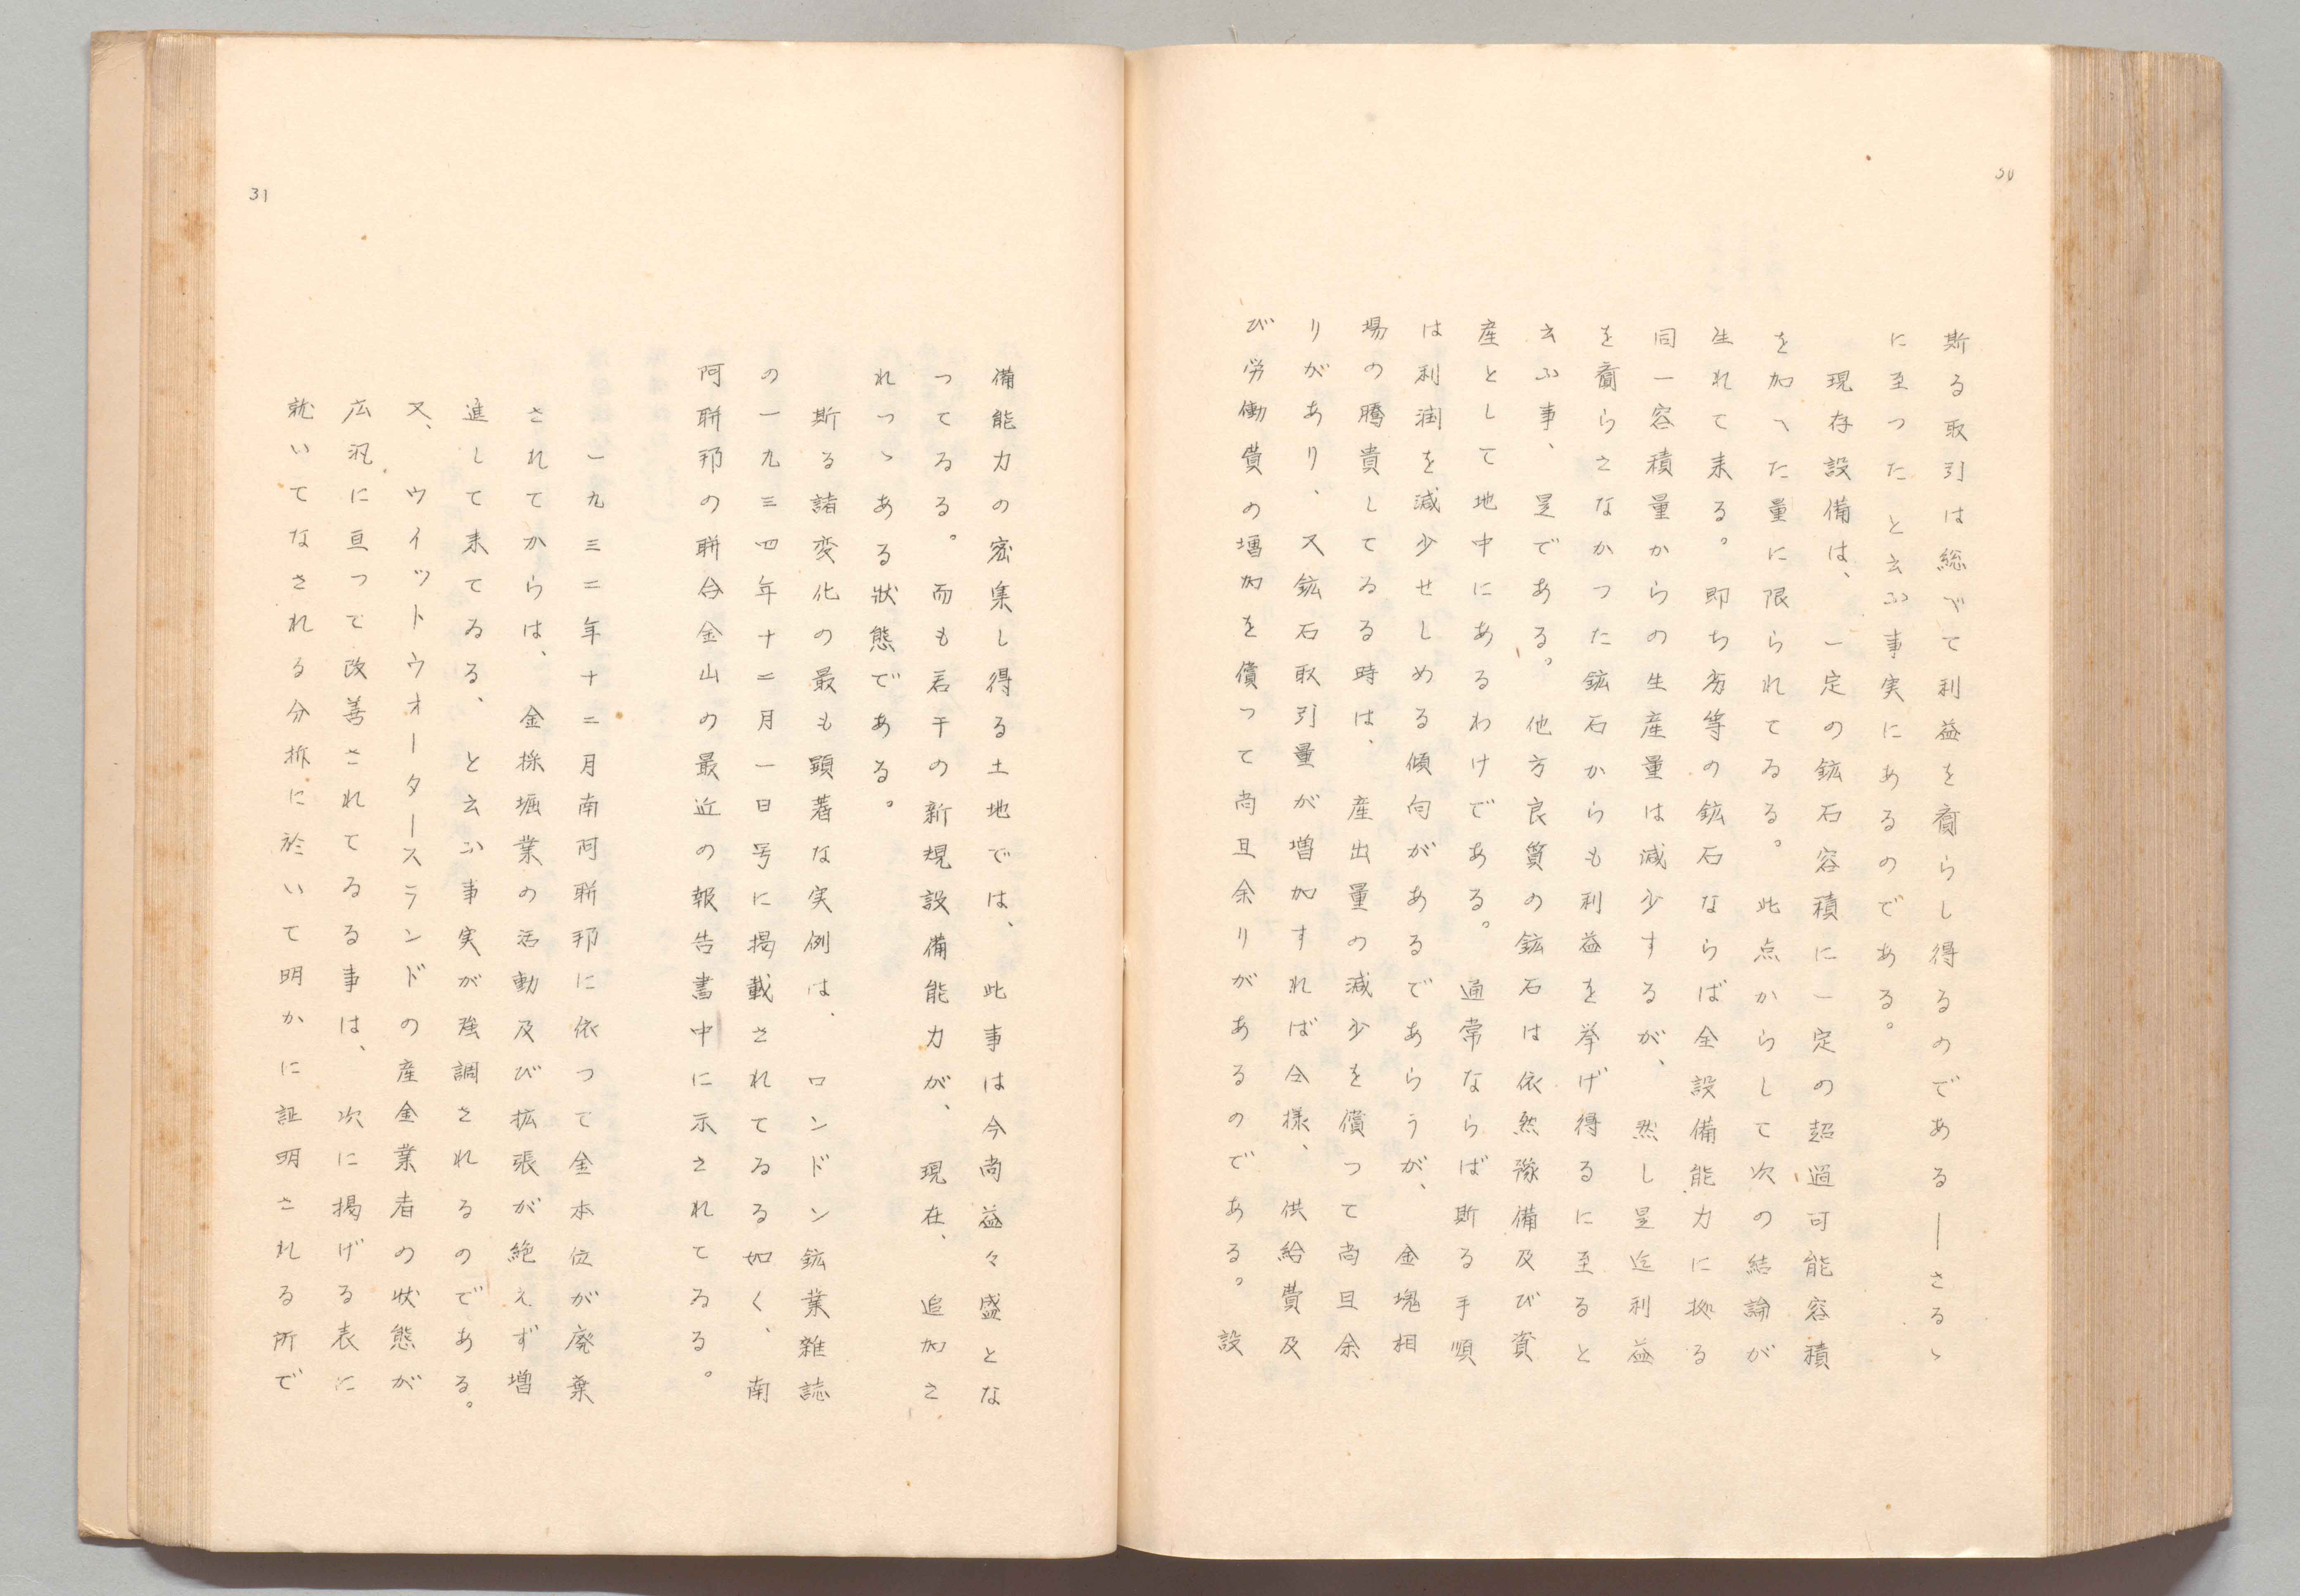 30
斯る取引は総べて利益を齎らし得るのである―さるゝ
に至つたと云ふ事実にあるのである。
現存設備は、一定の鉱石容積に一定の超過可能容積
を加へた量に限られてゐる。此点からして次の結論が
生れて来る。即ち劣等の鉱石ならば全設備能力に拠る
同一容積量からの生産量は減少するが、然し是迄利益
を齎らさなかつた鉱石からも利益を挙げ得るに至ると
云ふ事、是である。他方良質の鉱石は依然豫備及び資
産として地中にあるわけである。通常ならば斯る手順
は利潤を減少せしめる傾向があるであらうが、金塊相
場の騰貴してゐる時は、産出量の減少を償つて尚且余
りがあり、又鉱石取引量が増加すれば仝様、供給費及
び労働賃の増加を償つて尚且余りがあるのである。設
31
備能力の密集し得る土地では、此事は今尚益々盛とな
つてゐる。而も若干の新規設備能力が、現在、追加さ
れつゝある狀態である。
斯る諸変化の最も顕著な実例は、ロンドン鉱業雑誌
の一九三四年十二月一日号に掲載されてゐる如く、南
阿聯邦の聯合金山の最近の報告書中に示されてゐる。
一九三二年十二月南阿聯邦に依つて金本位が廃棄
されてからは、金採堀業の活動及び拡張が絶えず増
進して来てゐる、と云ふ事実が強調されるのである。
又、ウイットウオータースランドの産金業者の状態が
広汎に亘つて改善されてゐる事は、次に掲げる表に
就いてなされる分拆に於いて明かに証明される所で